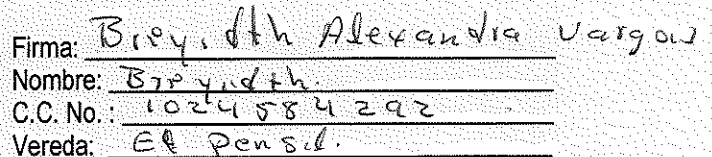 Firma: Breyidth Alexandra Vargas
Nombre: Breyidth.
C.C. No.: 1024584292
Vereda: El Pensil.